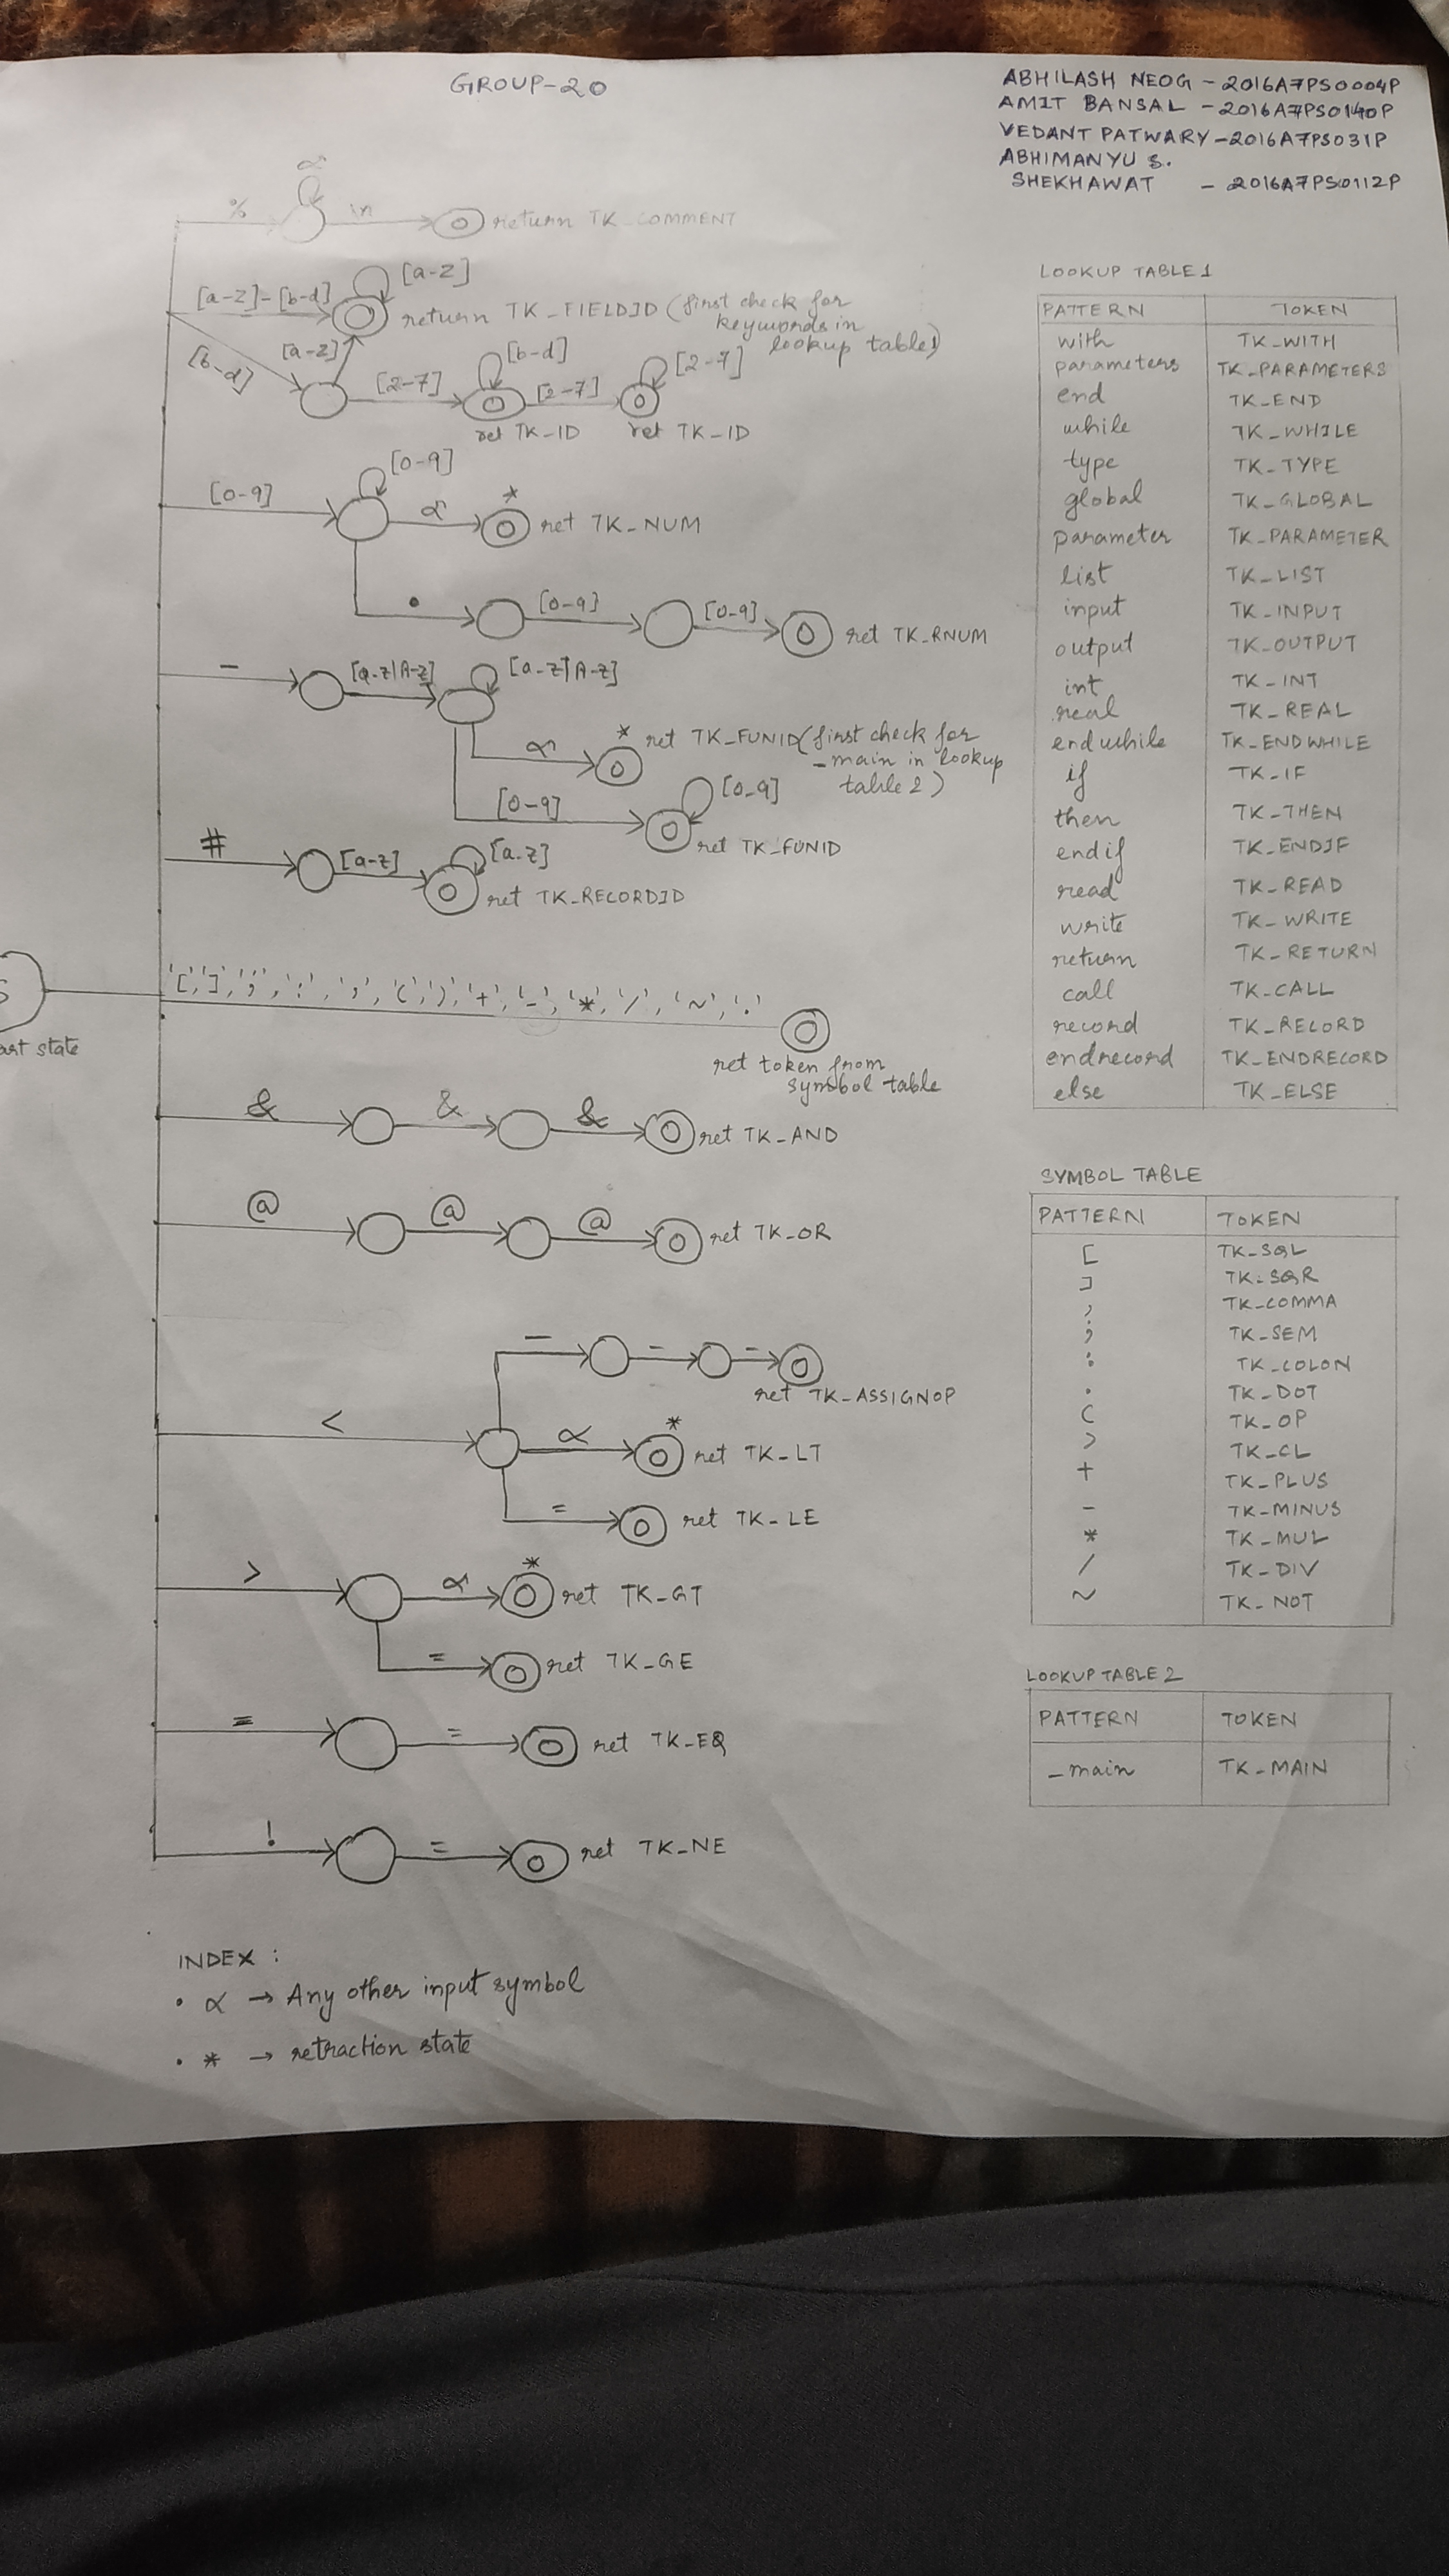 GROUP-20
ABHILASH NEOG - 2016A7PS0004P
AMIT BANSAL - 2016A7PS0140P
VEDANT PATWARY - 2016A7PS031P
ABHIMANYU S.
SHEKHAWAT - 2016A7PS0112P
% \n return TK_COMMENT
[a-z]-[b-d] [a-z] return TK_FIELDID (first check for
keywords in
lookup table1)
[b-d] [a-z] [2-7] [b-d] [2-7] [2-7]
ret TK_ID ret TK_ID
[0-9] [0-9] α * ret TK_NUM
. [0-9] [0-9] ret TK_RNUM
_ [a-z|A-z] [a-z|A-z]
α * ret TK_FUNID (first check for
_main in lookup
table 2)
[0-9] [0-9] ret TK_FUNID
# [a-z] [a-z] ret TK_RECORDID
S
art state
'[',']',';',':',',','(',')','+','-','*','/','~','.'
ret token from
symbol table
& & & ret TK_AND
@ @ @ ret TK_OR
- - - ret TK_ASSIGNOP
< α * ret TK_LT
= ret TK_LE
> α * ret TK_GT
= ret TK_GE
= = ret TK_EQ
! = ret TK_NE
INDEX :
• α → Any other input symbol
• * → retraction state
LOOKUP TABLE 1
PATTERN TOKEN
with TK_WITH
parameters TK_PARAMETERS
end TK_END
while TK_WHILE
type TK_TYPE
global TK_GLOBAL
parameter TK_PARAMETER
list TK_LIST
input TK_INPUT
output TK_OUTPUT
int TK_INT
real TK_REAL
endwhile TK_ENDWHILE
if TK_IF
then TK_THEN
endif TK_ENDIF
read TK_READ
write TK_WRITE
return TK_RETURN
call TK_CALL
record TK_RECORD
endrecord TK_ENDRECORD
else TK_ELSE
SYMBOL TABLE
PATTERN TOKEN
[ TK_SQL
] TK_SQR
, TK_COMMA
; TK_SEM
: TK_COLON
. TK_DOT
( TK_OP
) TK_CL
+ TK_PLUS
- TK_MINUS
* TK_MUL
/ TK_DIV
~ TK_NOT
LOOKUP TABLE 2
PATTERN TOKEN
_main TK_MAIN